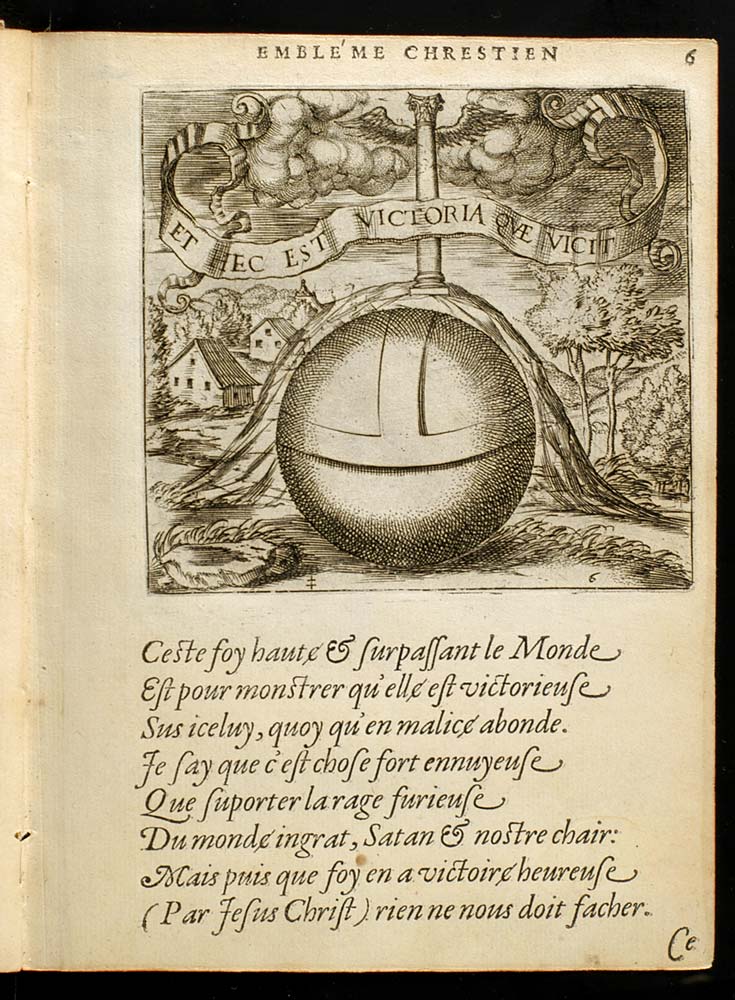 EMBLE'ME CHRESTIEN 6
ET HEC EST VICTORIA QVÆ VICIT
6
Ceste foy haute & surpassant le Monde
Est pour monstrer qu'elle est victorieuse
Sus iceluy, quoy qu'en malice abonde.
Je say que c'est chose fort ennuyeuse
Que suporter la rage furieuse
Du monde ingrat, Satan & nostre chair:
Mais puis que foy en a victoire heureuse
(Par Jesus Christ) rien ne nous doit facher.
Ce